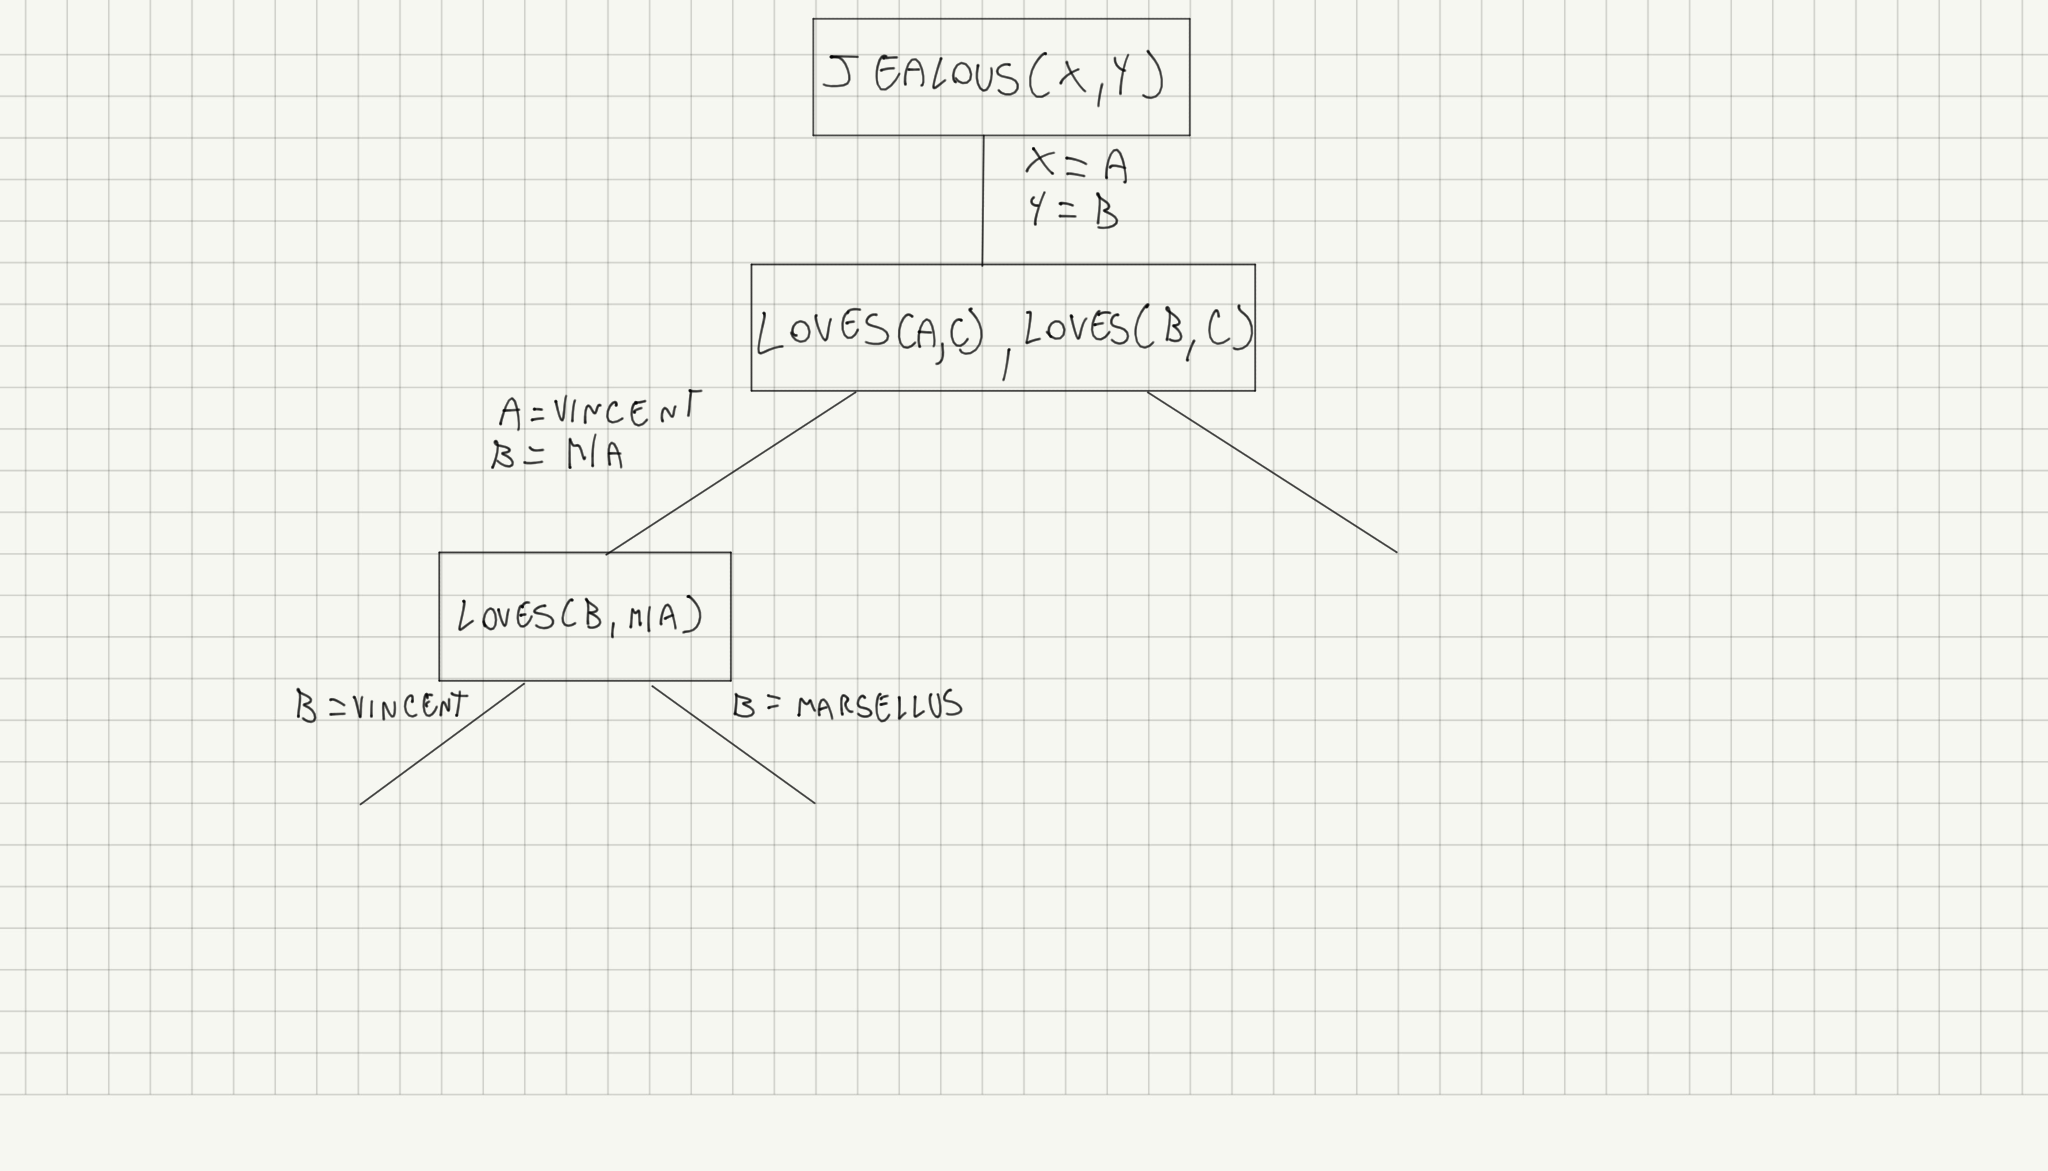 JEALOUS(X,Y)
X = A
Y = B
LOVES(A,C), LOVES(B,C)
A = VINCENT
B = MIA
LOVES(B, MIA)
B = VINCENT
B = MARSELLUS